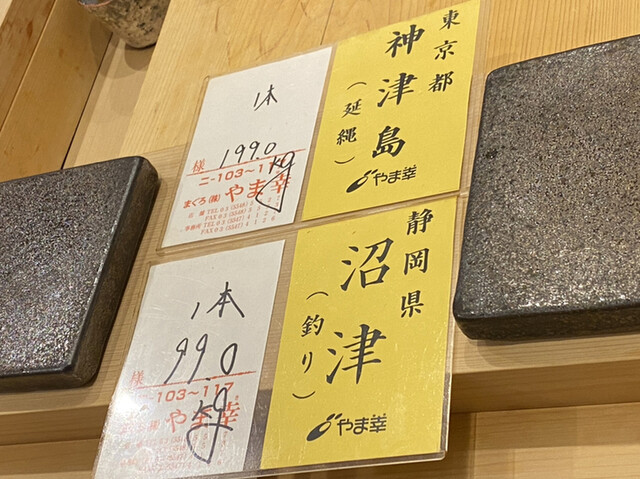 東京都
神津島
(延縄)
やま幸
1本
199.0
kg
様
まぐろ(株) やま幸
静岡県
沼津
(釣り)
やま幸
1本
99.0
kg
様
-103~117
やま幸